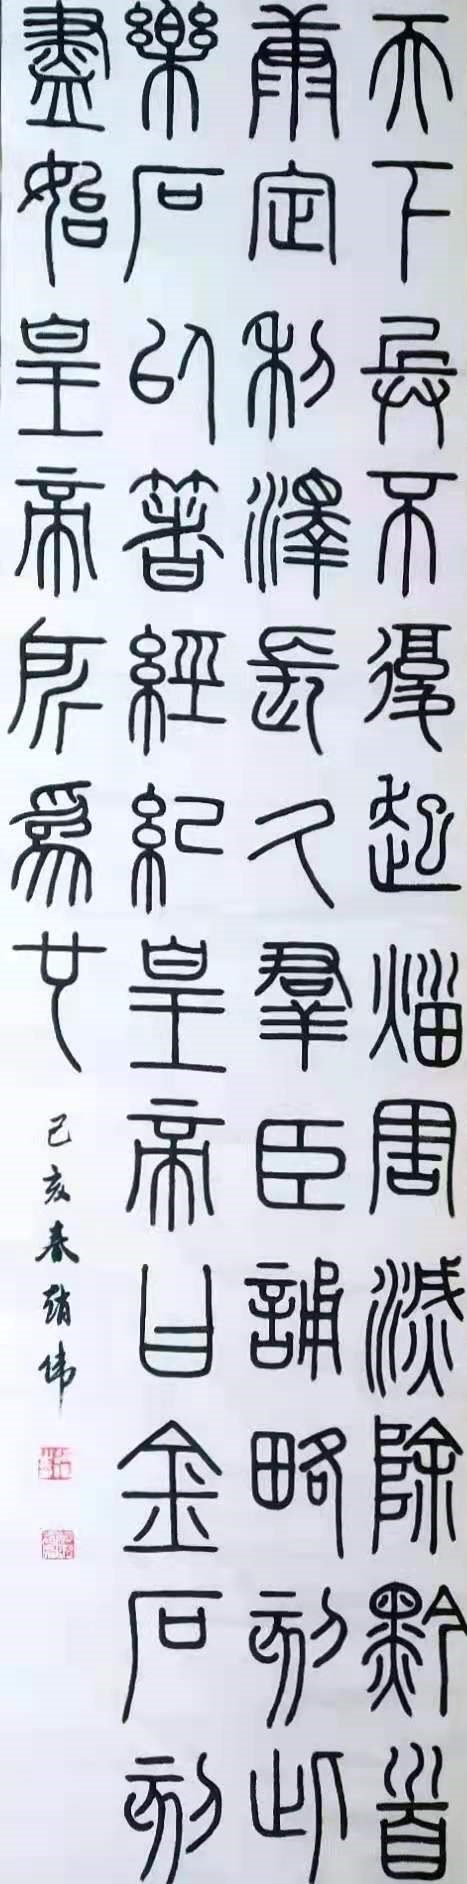 天下兵不復起災害滅除黔首
康定利澤長久羣臣誦略刻此
樂石以著經紀皇帝曰金石刻
盡始皇帝所為也
己亥春偉